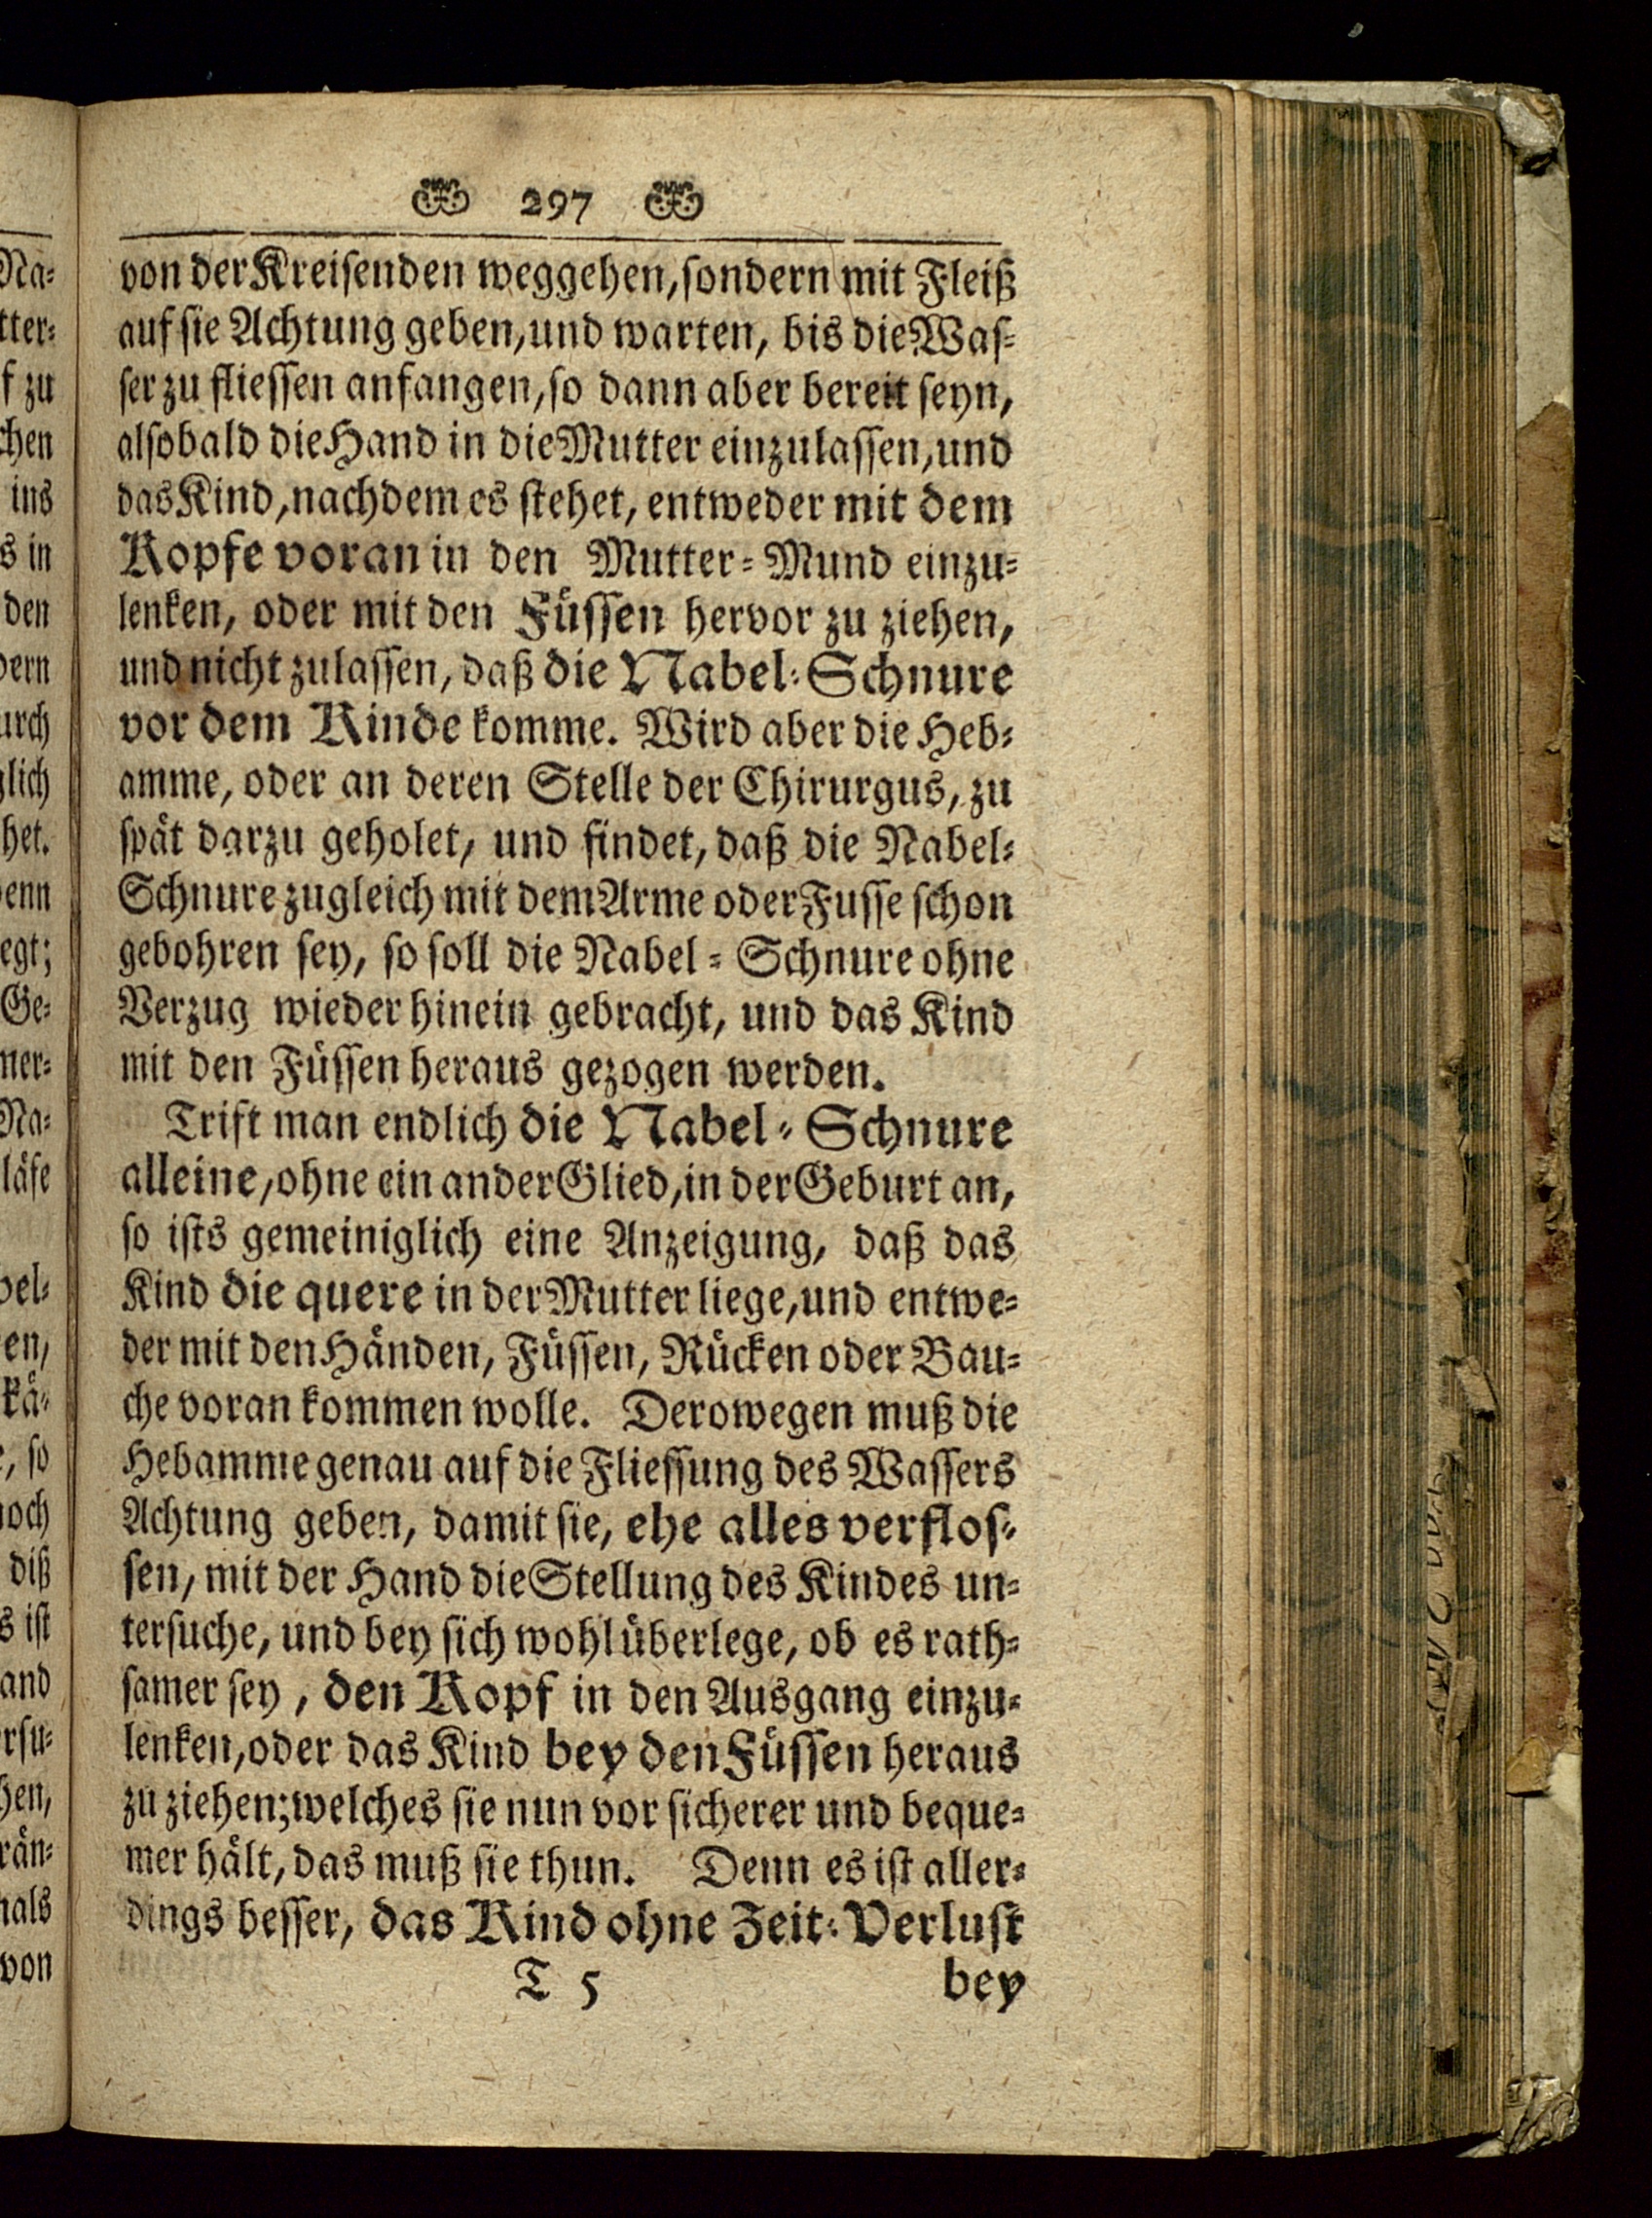 297
von der Kreisenden weggehen, sondern mit Fleiß
auf sie Achtung geben, und warten, bis die Was-
ser zu fliessen anfangen, so dann aber bereit seyn,
alsobald die Hand in die Mutter einzulassen, und
das Kind, nachdem es stehet, entweder mit dem
Kopfe voran in den Mutter-Mund einzu-
lenken, oder mit den Füssen hervor zu ziehen,
und nicht zulassen, daß die Nabel-Schnure
vor dem Kinde komme. Wird aber die Heb-
amme, oder an deren Stelle der Chirurgus, zu
spät darzu geholet, und findet, daß die Nabel-
Schnure zugleich mit dem Arme oder Fusse schon
gebohren sey, so soll die Nabel-Schnure ohne
Verzug wieder hinein gebracht, und das Kind
mit den Füssen heraus gezogen werden.
Trift man endlich die Nabel-Schnure
alleine, ohne ein ander Glied, in der Geburt an,
so ists gemeiniglich eine Anzeigung, daß das
Kind die quere in der Mutter liege, und entwe-
der mit den Händen, Füssen, Rücken oder Bau-
che voran kommen wolle. Derowegen muß die
Hebamme genau auf die Fliessung des Wassers
Achtung geben, damit sie, ehe alles verflos-
sen, mit der Hand die Stellung des Kindes un-
tersuche, und bey sich wohl überlege, ob es rath-
samer sey, den Kopf in den Ausgang einzu-
lenken, oder das Kind bey den Füssen heraus
zu ziehen; welches sie nun vor sicherer und beque-
mer hält, das muß sie thun. Denn es ist aller-
dings besser, das Kind ohne Zeit-Verlust
T 5 bey